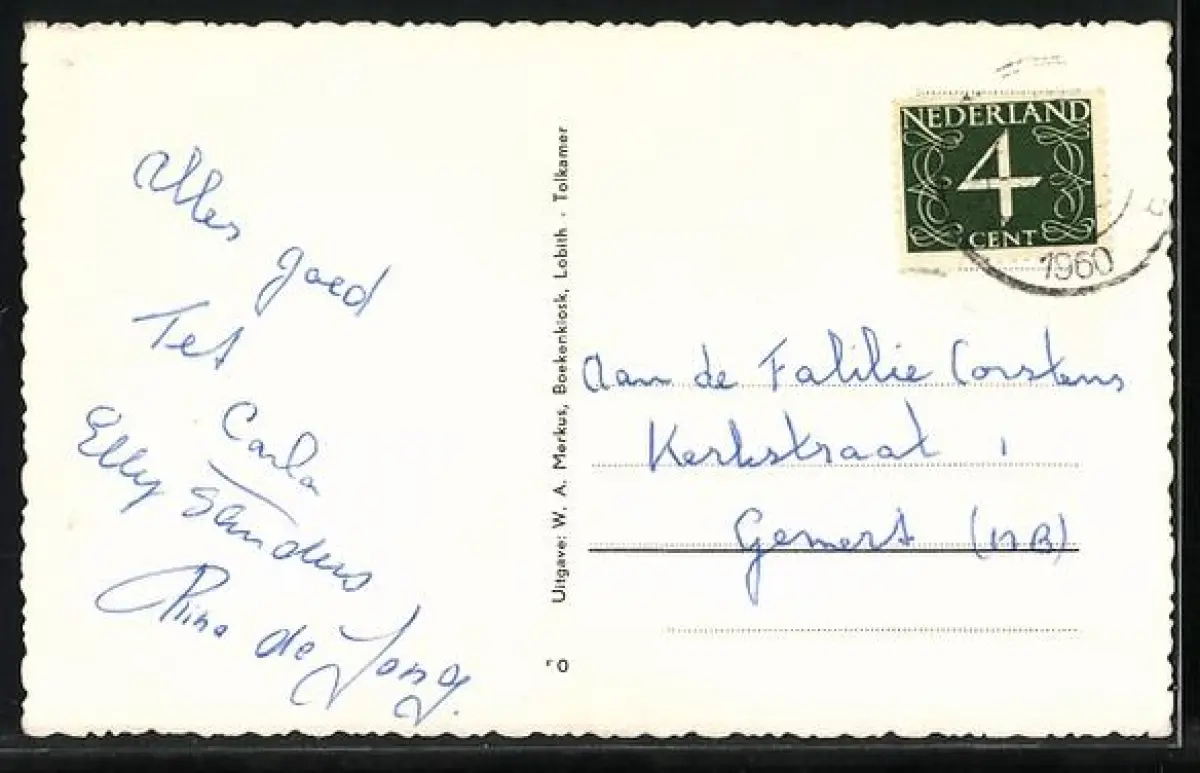 Alles goed
Tet
Carla
Elly Sanders
Rina de Jong.
Uitgave: W. A. Merkus, Boekenkiosk, Lobith - Tolkamer
O
NEDERLAND
4
CENT
1960
Aan de Falilie Corstens
Kerkstraat 1
Gemert (NB)